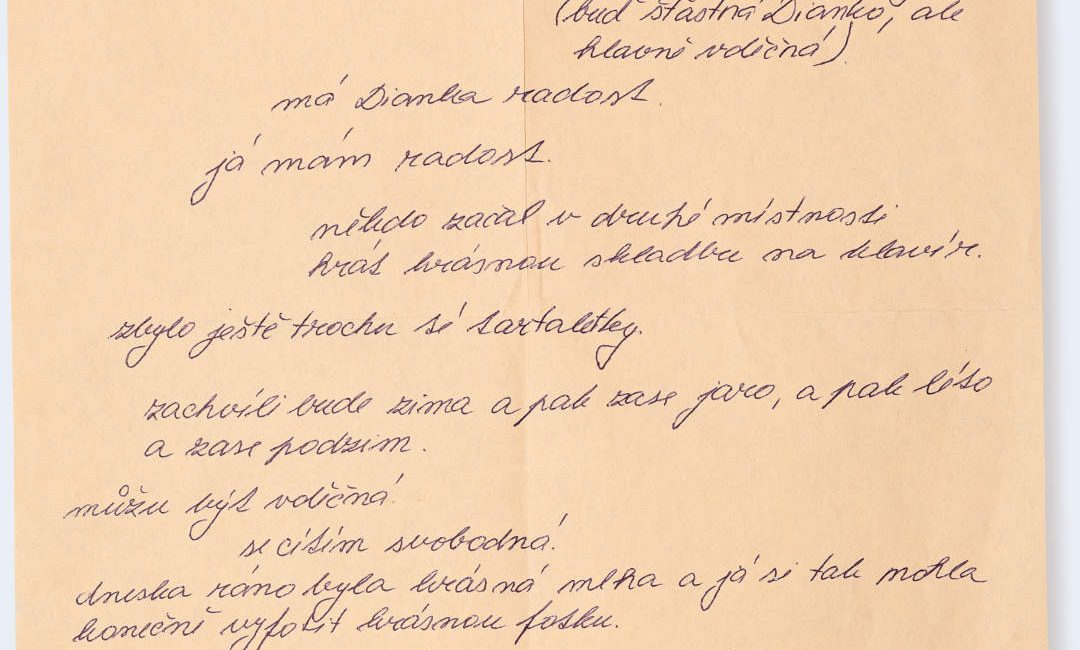 (buď šťastná Dianko, ale
hlavně vděčná)
má Dianka radost.
já mám radost.
někdo začal v druhé místnosti
hrát krásnou skladbu na klavír.
zbylo ještě trochu té tartaletky.
zachvíli bude zima a pak zase jaro, a pak léto
a zase podzim.
můžu být vděčná.
se cítím svobodná.
dneska ráno byla krásná mlha a já si tak mohla
konečně vyfotit krásnou fotku.